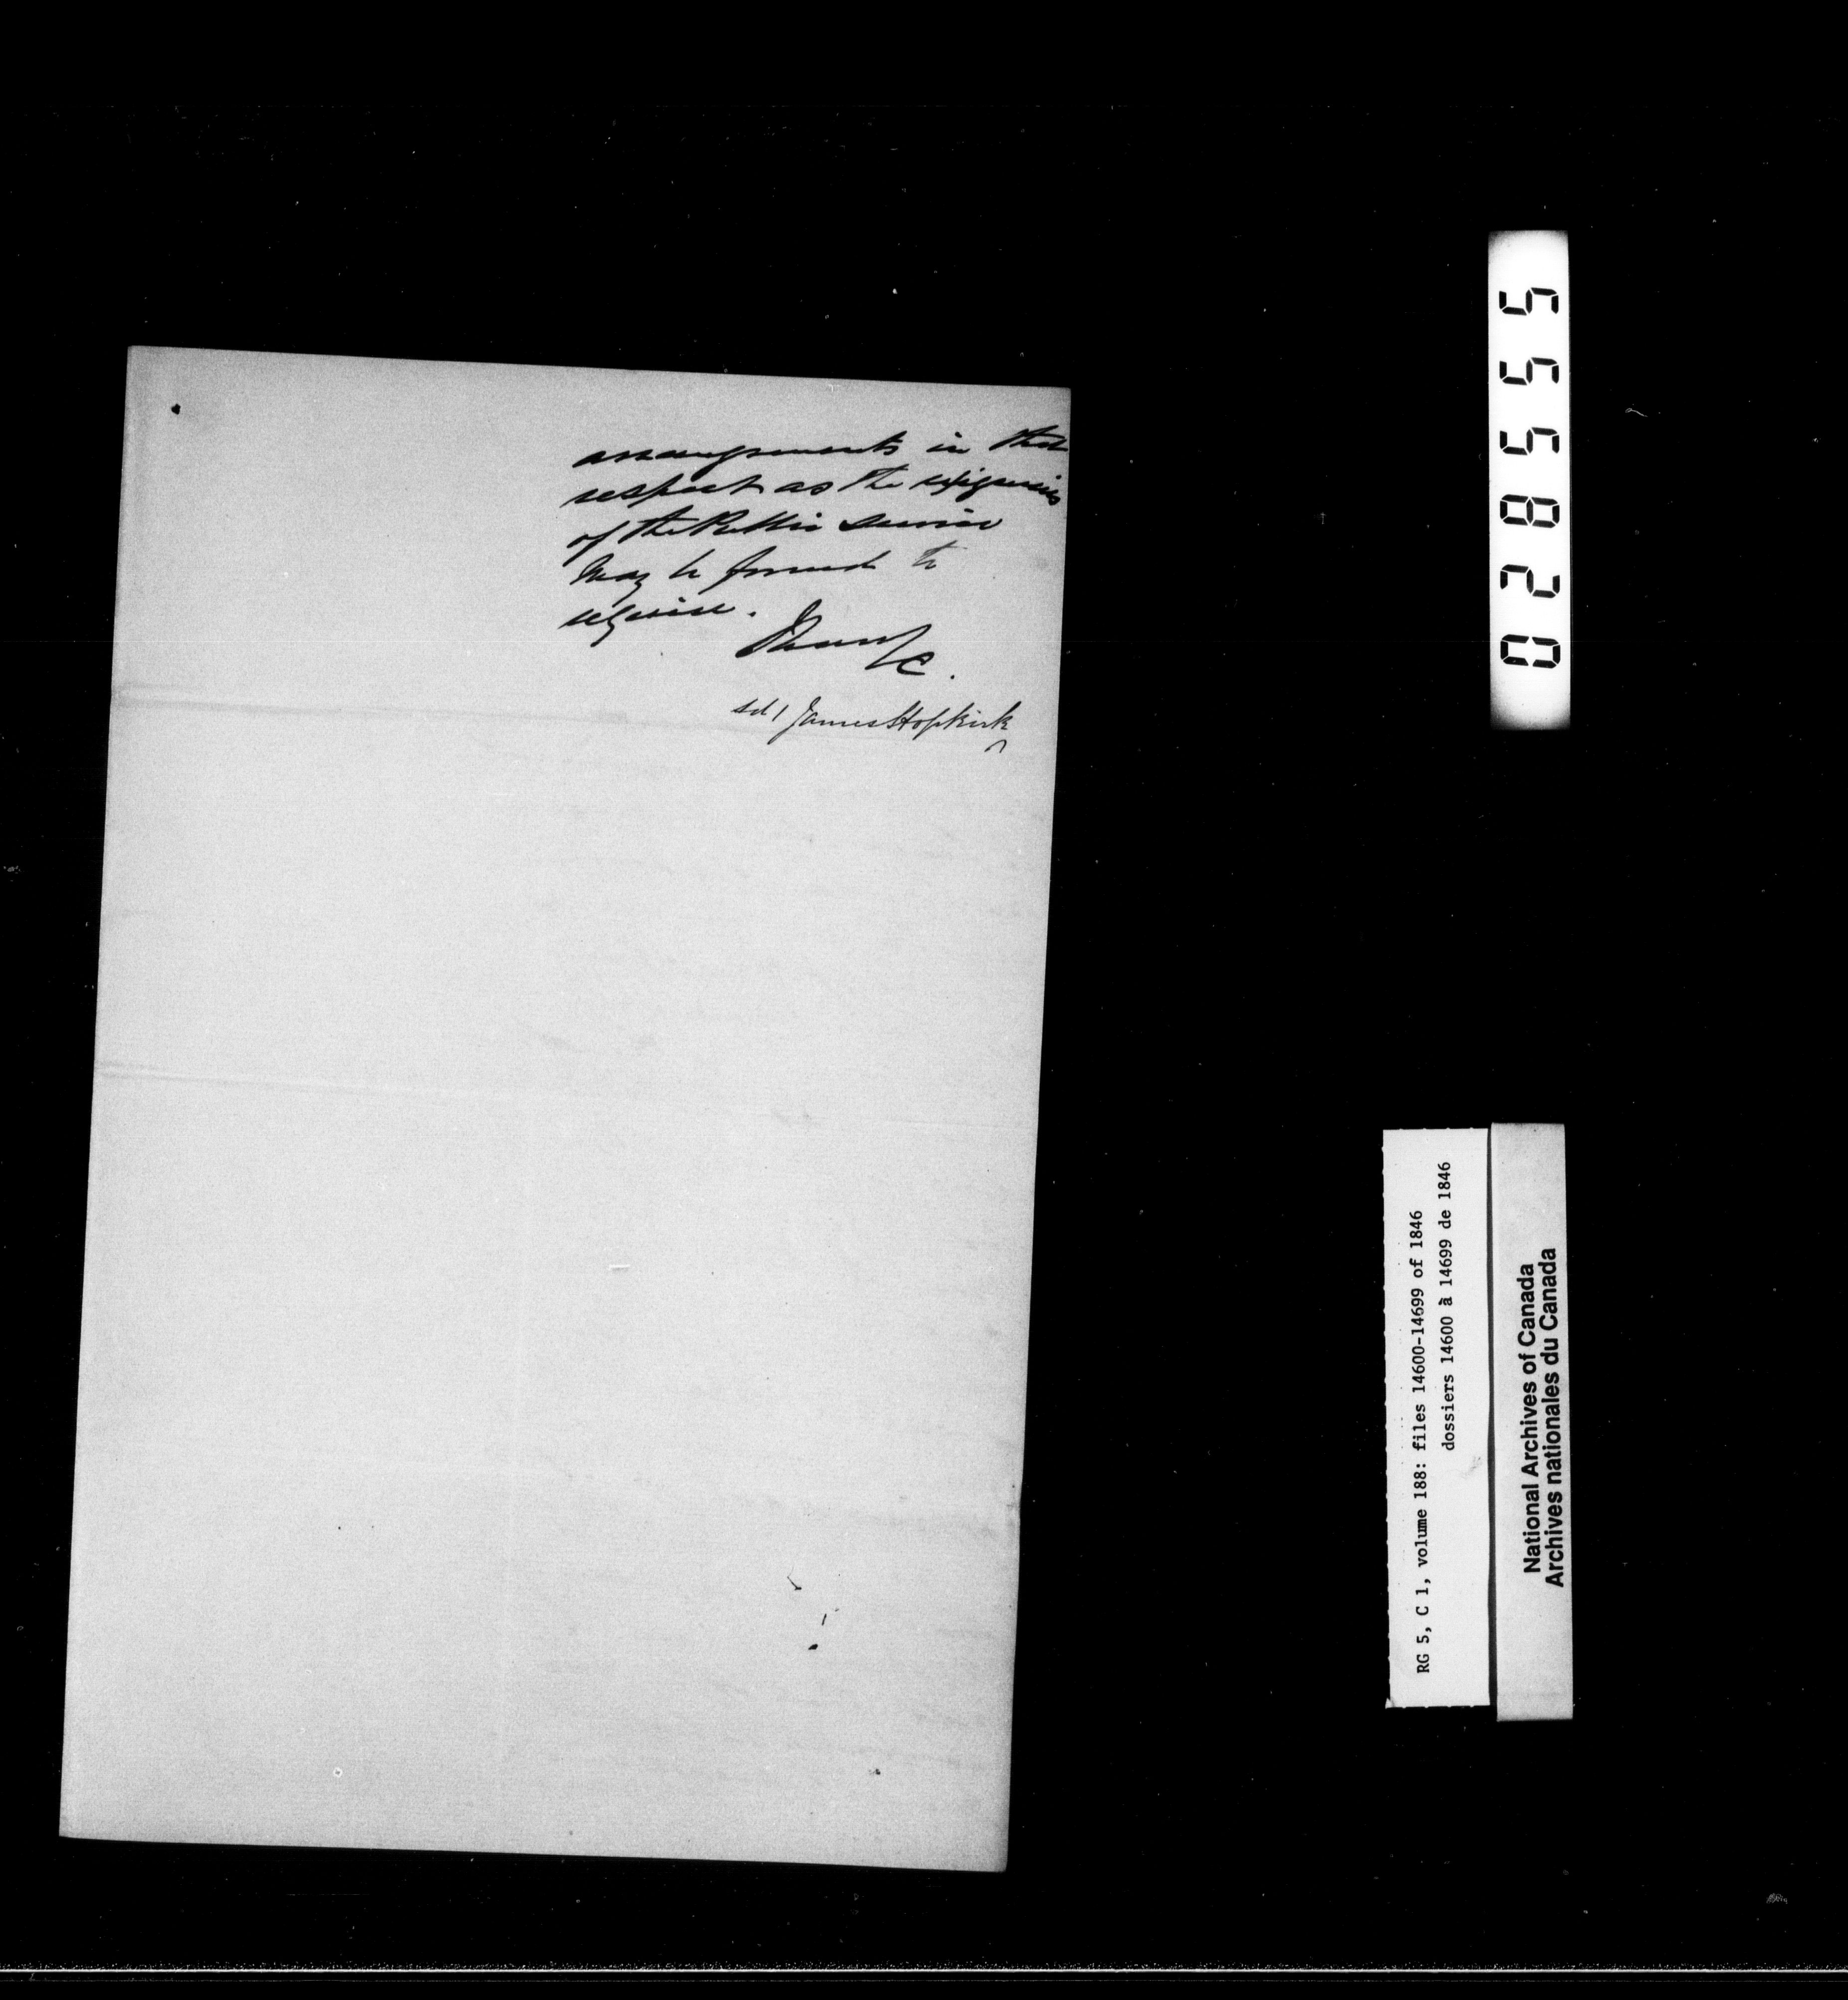 arrangements in that
respect as the exigencies
of the Public Service
may be found to
require.
I have &c.
sd/ James Hopkirk
028555
RG 5, C 1, volume 188: files 14600-14699 of 1846
dossiers 14600 à 14699 de 1846
National Archives of Canada
Archives nationales du Canada